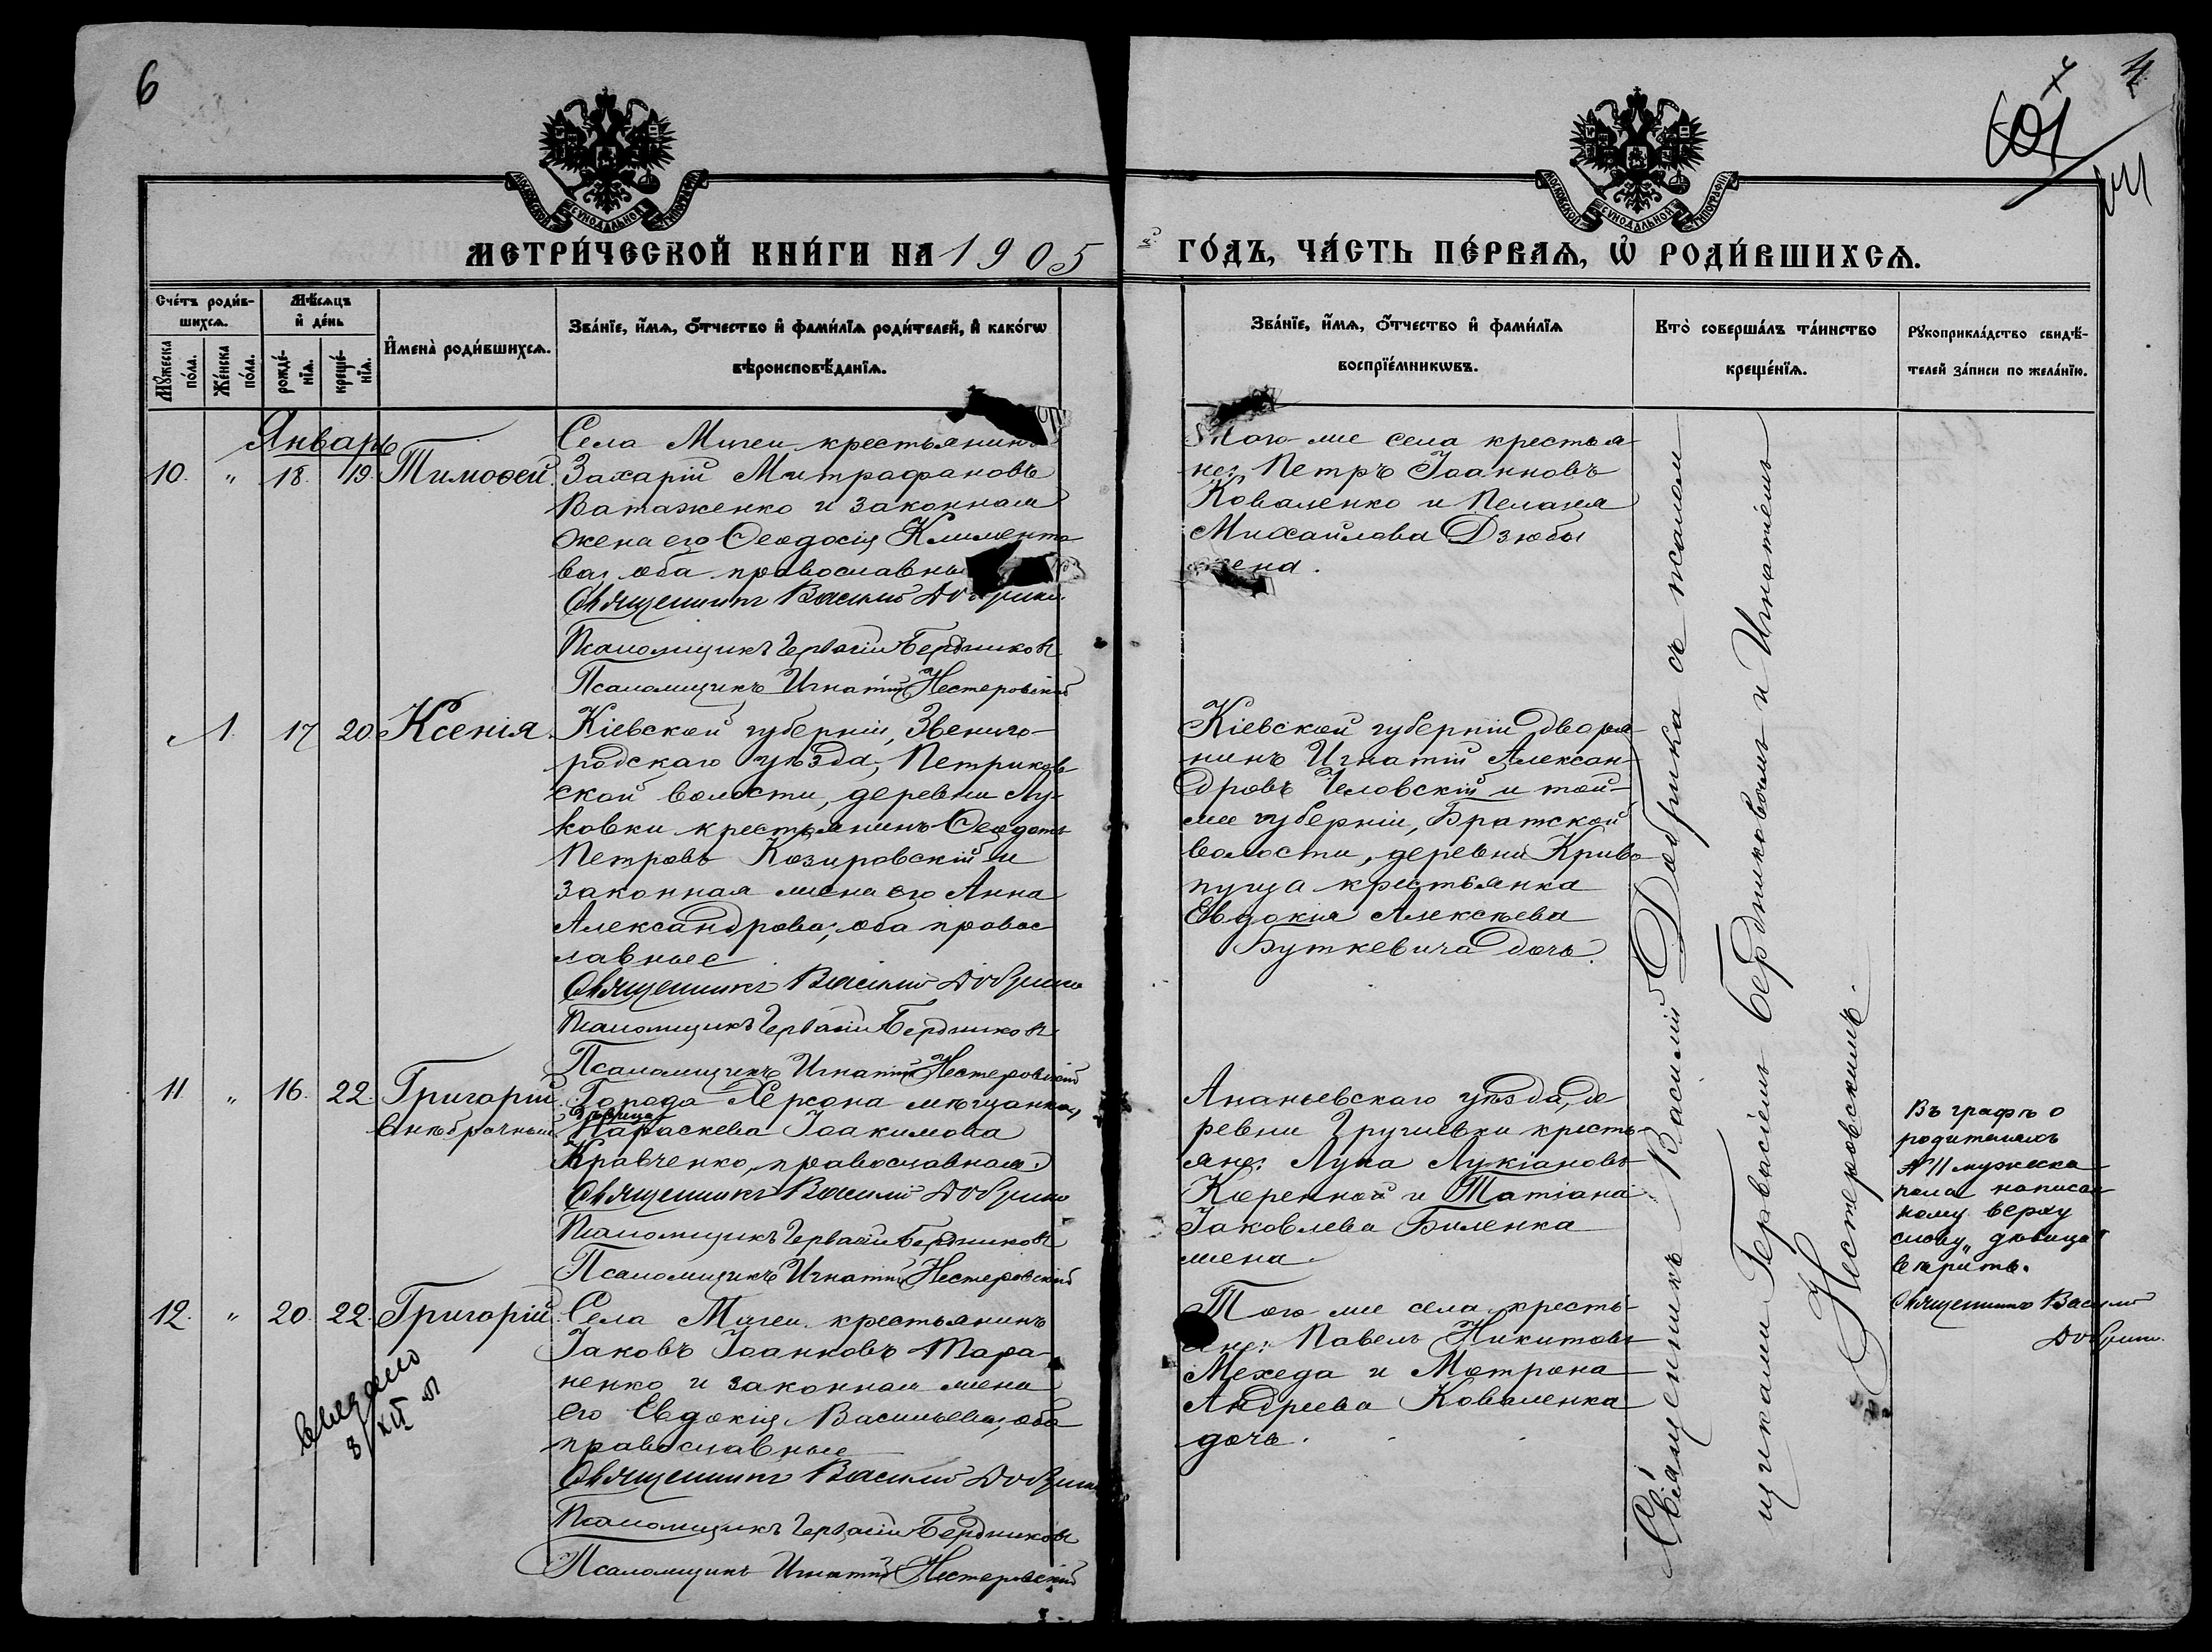 6
4
МОСКОВСКОЙ СУНОДАЛЬНОЙ ТИПОГРАФІИ
МОСКОВСКОЙ СУНОДАЛЬНОЙ ТИПОГРАФІИ
МЕТРИ́ЧЕСКОЙ КНИ́ГИ НА 1905
ГО́ДЪ, ЧА́СТЬ ПЕ́РВАѦ, Ѡ҆ РОДИ́ВШИХСѦ.
Сче́тъ роди́в-
шихсѧ.
Мѣ́сѧцъ
и҆ де́нь
Мꙋ́жеска
по́ла.
Же́нска
по́ла.
рожде́-
нїѧ.
креще́-
нїѧ.
И҆мена̀ роди́вшихсѧ.
Зва́нїе, и҆́мѧ, ѻ҆́тчество и҆ фами́лїѧ роди́телей, и҆ како́гѡ
вѣроисповѣ́данїѧ.
Зва́нїе, и҆́мѧ, ѻ҆́тчество и҆ фами́лїѧ
воспрїе́мникѡвъ.
Кто̀ соверша́лъ та́инство
креще́нїѧ.
Рꙋкоприкла́дство свидѣ́-
телей за́писи по жела́нїю.
Январь
10. " 18. 19. Тимоѳей.
Села Мигеи крестьянинъ
Захарій Митрафановъ
Ватаженко и законная
жена его Ѳеодосія Климента
ва, оба православные
Священникъ Василій Добрика
Псаломщикъ Гервасій Бердниковъ
Псаломщикъ Игнатій Нестеровскій
Того-же села крестья-
не: Петръ Іоанновъ
Коваленко и Пелагея
Михайлова Дзюбы
жена.
1. 17 20. Ксенія.
Кіевской губерніи, Звениго-
родскаго уѣзда, Петриков-
ской волости, деревни Лу-
ковки крестьянинъ Ѳеодотъ
Петровъ Козировскій и
законная жена его Анна
Александрова; оба правос
лавные
Священникъ Василій Добрика
Псаломщикъ Гервасій Бердниковъ
Псаломщикъ Игнатій Нестеровскій
Кіевской губерніи дворя-
нинъ Игнатій Алексан-
дровъ Человскій и той-
же губерніи, Братской
волости, деревни Криво
пуща крестьянка
Евдокія Алексѣева
Буткевича дочь.
11. " 16. 22. Григорій
внѣбрачный
Города Херсона мѣщанка,
дѣвица
Параскева Іоакимова
Кравченко, православная.
Священникъ Василій Добрика
Псаломщикъ Гервасій Бердниковъ
Псаломщикъ Игнатій Нестеровскій
Ананьевскаго уѣзда, де
ревни крестья-
яне: Лука Лукіановъ
Коренной и Татіана
Іаковлева Биленка
жена.
Въ графѣ о
родителяхъ
№ 11 мужеска
пола написан
ному верху
слову „дѣвица"
вѣрить.
Священникъ Василій
Добрика.
12. " 20. 22. Григорій.
Села Мигеи крестьянинъ
Іаковъ Іоанновъ Тара-
ненко и законная жена
его Евдокія Васильева, оба
православные
Священникъ Василій Добрика
Псаломщикъ Гервасій Бердниковъ
Псаломщикъ Игнатій Нестеровскій
Того-же села кресть-
яне: Павелъ Никитовъ
Мехеда и Мотрона
Андреева Коваленка
дочь.
выдано
8/XII
Священникъ Василій Добрика съ псалом
щиками Гервасіемъ Бердниковымъ и Игнатіемъ
Нестеровскимъ.